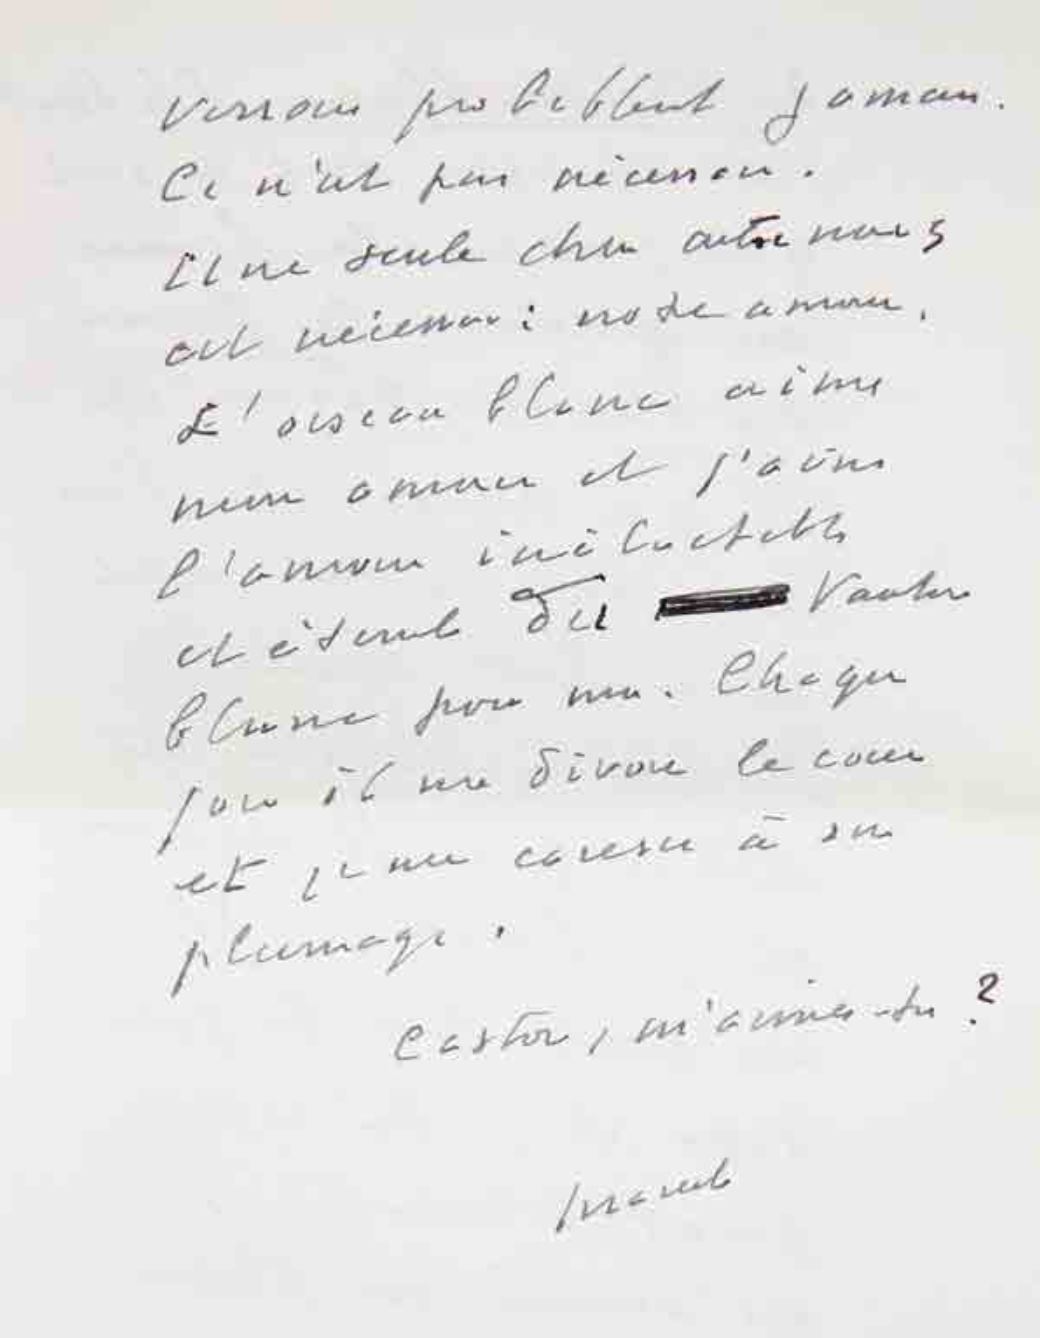 verrons probablement jamais.
Ce n'est pas nécessaire.
Une seule chose entre nous
est nécessaire : notre amour.
L'oiseau blanc aime
mon amour et j'aime
l'amour inéluctable
et éternel du Vautour
blanc pour moi. Chaque
jour il me dévore le coeur
et je me caresse à son
plumage.
Castor, m'aimes-tu ?